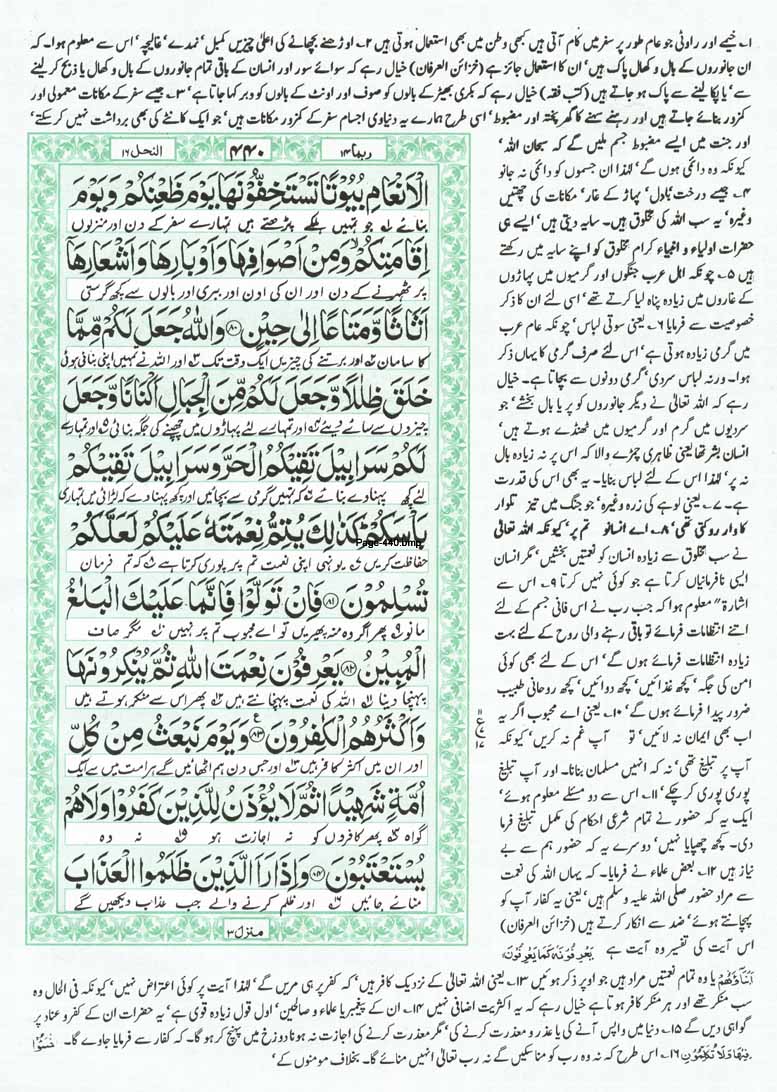 ۱۔ خیمے اور راوٹی جو عام طور پر سفر میں کام آتی ہیں کبھی وطن میں بھی استعمال ہوتی ہیں ۲۔ اوڑھنے بچھانے کی اعلیٰ چیزیں کمبل، نمدے، غالیچہ، اس سے معلوم ہوا۔ کہ
ان جانوروں کے بال و کھال پاک ہیں، ان کا استعمال جائز ہے (خزائن العرفان) خیال رہے کہ سوائے سور اور انسان کے باقی تمام جانوروں کے بال و کھال یا ذبح کر لینے
سے، یا پکا لینے سے پاک ہو جاتے ہیں (کتب فقہ) خیال رہے کہ بکری بھیڑ کے بالوں کو صوف اور اونٹ کے بالوں کو وبر کہا جاتا ہے، ۳۔ جیسے سفر کے مکانات معمولی اور
کمزور بنائے جاتے ہیں اور رہنے سہنے کا گھر پختہ اور مضبوط، اسی طرح ہمارے یہ دنیاوی اجسام سفر کے کمزور مکانات ہیں، جو ایک کانٹے کی بھی برداشت نہیں کر سکتے،
اور جنت میں ایسے مضبوط جسم ملیں گے کہ سبحان اللہ،
کیونکہ وہ دائمی ہوں گے، لہٰذا ان جسموں کو دائمی نہ جانو
۴۔ جیسے درخت، بادل، پہاڑ کے غار، مکانات کی چھتیں
وغیرہ، یہ سب اللہ کی مخلوق ہیں۔ سایہ دیتی ہیں، ایسے ہی
حضرات اولیاء و انبیاء کرام مخلوق کو اپنے سایہ میں رکھتے
ہیں ۵۔ چونکہ اہل عرب جنگوں اور گرمیوں میں پہاڑوں
کے غاروں میں زیادہ پناہ لیا کرتے تھے، اسی لئے ان کا ذکر
خصوصیت سے فرمایا ۶۔ یعنی سوتی لباس، چونکہ عام عرب
میں گرمی زیادہ ہوتی ہے، اس لئے صرف گرمی کا یہاں ذکر
ہوا۔ ورنہ لباس سردی، گرمی دونوں سے بچاتا ہے۔ خیال
رہے کہ اللہ تعالیٰ نے دیگر جانوروں کو پر یا بال بخشے، جو
سردیوں میں گرم اور گرمیوں میں ٹھنڈے ہوتے ہیں،
انسان بشر تھا یعنی ظاہری چمڑے والا کہ اس پر نہ زیادہ بال
نہ پر، لہٰذا اس کے لئے لباس بنایا۔ یہ بھی اس کی قدرت
ہے۔ ۷۔ یعنی لوہے کی زرہ وغیرہ، جو جنگ میں تیز تلوار
کا وار روکتی تھی، ۸۔ اے انسانو تم پر، کیونکہ اللہ تعالیٰ
نے سب مخلوق سے زیادہ انسان کو نعمتیں بخشیں، مگر انسان
ایسی نافرمانیاں کرتا ہے جو کوئی نہیں کرتا ۹۔ اس سے
اشارۃً معلوم ہوا کہ جب رب نے اس فانی جسم کے لئے
اتنے انتظامات فرمائے تو باقی رہنے والی روح کے لئے بہت
زیادہ انتظامات فرمائے ہوں گے، اس کے لئے بھی کوئی
امن کی جگہ، کچھ غذائیں، کچھ دوائیں، کچھ روحانی طبیب
ضرور پیدا فرمائے ہوں گے، ۱۰۔ یعنی اے محبوب اگر یہ
اب بھی ایمان نہ لائیں، تو آپ غم نہ کریں، کیونکہ
آپ پر تبلیغ تھی، نہ کہ انہیں مسلمان بنانا۔ اور آپ تبلیغ
پوری پوری کر چکے، ۱۱۔ اس سے دو مسئلے معلوم ہوئے،
ایک یہ کہ حضور نے تمام شرعی احکام کی مکمل تبلیغ فرما
دی۔ کچھ چھپایا نہیں، دوسرے یہ کہ حضور ہم سے بے
نیاز ہیں ۱۲۔ بعض علماء نے فرمایا۔ کہ یہاں اللہ کی نعمت
سے مراد حضور صلی اللہ علیہ وسلم ہیں، یعنی یہ کفار آپ کو
پہچانتے ہوئے، ضد سے انکار کرتے ہیں (خزائن العرفان)
اس آیت کی تفسیر وہ آیت ہے یَعْرِفُوْنَہٗ کَمَا یَعْرِفُوْنَ
اَبْنَآءَھُمْ یا وہ تمام نعمتیں مراد ہیں جو اوپر ذکر ہوئیں ۱۳۔ یعنی اللہ تعالیٰ کے نزدیک کافر ہیں، کہ کفر پر ہی مریں گے، لہٰذا آیت پر کوئی اعتراض نہیں، کیونکہ فی الحال وہ
سب منکر تھے اور ہر منکر کافر ہوتا ہے خیال رہے کہ یہ اکثریت اضافی نہیں ۱۴۔ ان کے پیغمبر یا علماء و صالحین، اول قول زیادہ قوی ہے، یہ حضرات ان کے کفر و عناد پر
گواہی دیں گے ۱۵۔ دنیا میں واپس آنے کی یا عذر و معذرت کرنے کی، مگر معذرت کرنے کی اجازت نہ ہونا دوزخ میں پہنچ کر ہو گا۔ کہ کفار سے فرمایا جاوے گا۔ اخْسَئُوْا
فِیْھَا وَلَا تُکَلِّمُوْنِ ۱۶۔ اس طرح کہ نہ وہ رب کو منا سکیں گے نہ رب تعالیٰ انہیں منائے گا۔ بخلاف مومنوں کے،
ربما ۱۴ ۴۴۰ النحل ۱۶
الْاَنْعَامِ بُیُوْتًا تَسْتَخِفُّوْنَهَا یَوْمَ ظَعْنِكُمْ وَ یَوْمَ
بنائے جو تمہیں ہلکے پڑتے ہیں تمہارے سفر کے دن اور منزلوں
اِقَامَتِكُمْ ۙ وَ مِنْ اَصْوَافِهَا وَ اَوْبَارِهَا وَ اَشْعَارِهَاۤ
پر ٹھہرنے کے دن اور ان کی اون اور ببری اور بالوں سے کچھ گرستی
اَثَاثًا وَّ مَتَاعًا اِلٰى حِیْنٍ ۸۰ وَ اللّٰهُ جَعَلَ لَكُمْ مِّمَّا
کا سامان اور برتنے کی چیزیں ایک وقت تک اور اللہ نے تمہیں اپنی بنائی ہوئی
خَلَقَ ظِلٰلًا وَّ جَعَلَ لَكُمْ مِّنَ الْجِبَالِ اَكْنَانًا وَّ جَعَلَ
چیزوں سے سائے دیئے اور تمہارے لئے پہاڑوں میں چھپنے کی جگہ بنائی اور تمہارے
لَكُمْ سَرَابِیْلَ تَقِیْكُمُ الْحَرَّ وَ سَرَابِیْلَ تَقِیْكُمْ
لئے کچھ پہناوے بنائے کہ تمہیں گرمی سے بچائیں اور کچھ پہناوے کہ لڑائی میں تمہاری
بَاْسَكُمْ ؕ كَذٰلِكَ یُتِمُّ نِعْمَتَهٗ عَلَیْكُمْ لَعَلَّكُمْ
Page-440.bmp
حفاظت کریں یونہی اپنی نعمت تم پر پوری کرتا ہے کہ تم فرمان
تُسْلِمُوْنَ ۸۱ فَاِنْ تَوَلَّوْا فَاِنَّمَا عَلَیْكَ الْبَلٰغُ
مانو پھر اگر وہ منہ پھیریں تو اے محبوب تم پر نہیں مگر صاف
الْمُبِیْنُ ۸۲ یَعْرِفُوْنَ نِعْمَتَ اللّٰهِ ثُمَّ یُنْكِرُوْنَهَا
پہنچا دینا اللہ کی نعمت پہچانتے ہیں پھر اس سے منکر ہوتے ہیں
وَ اَكْثَرُهُمُ الْكٰفِرُوْنَ ۸۳ وَ یَوْمَ نَبْعَثُ مِنْ كُلِّ
اور ان میں اکثر کافر ہیں اور جس دن ہم اٹھائیں گے ہر امت میں سے ایک
اُمَّةٍ شَهِیْدًا ثُمَّ لَا یُؤْذَنُ لِلَّذِیْنَ كَفَرُوْا وَ لَا هُمْ
گواہ پھر کافروں کو نہ اجازت ہو نہ وہ
یُسْتَعْتَبُوْنَ ۸۴ وَ اِذَا رَاَ الَّذِیْنَ ظَلَمُوا الْعَذَابَ
منائے جائیں اور ظلم کرنے والے جب عذاب دیکھیں گے
منزل ۳
ع
۱۷